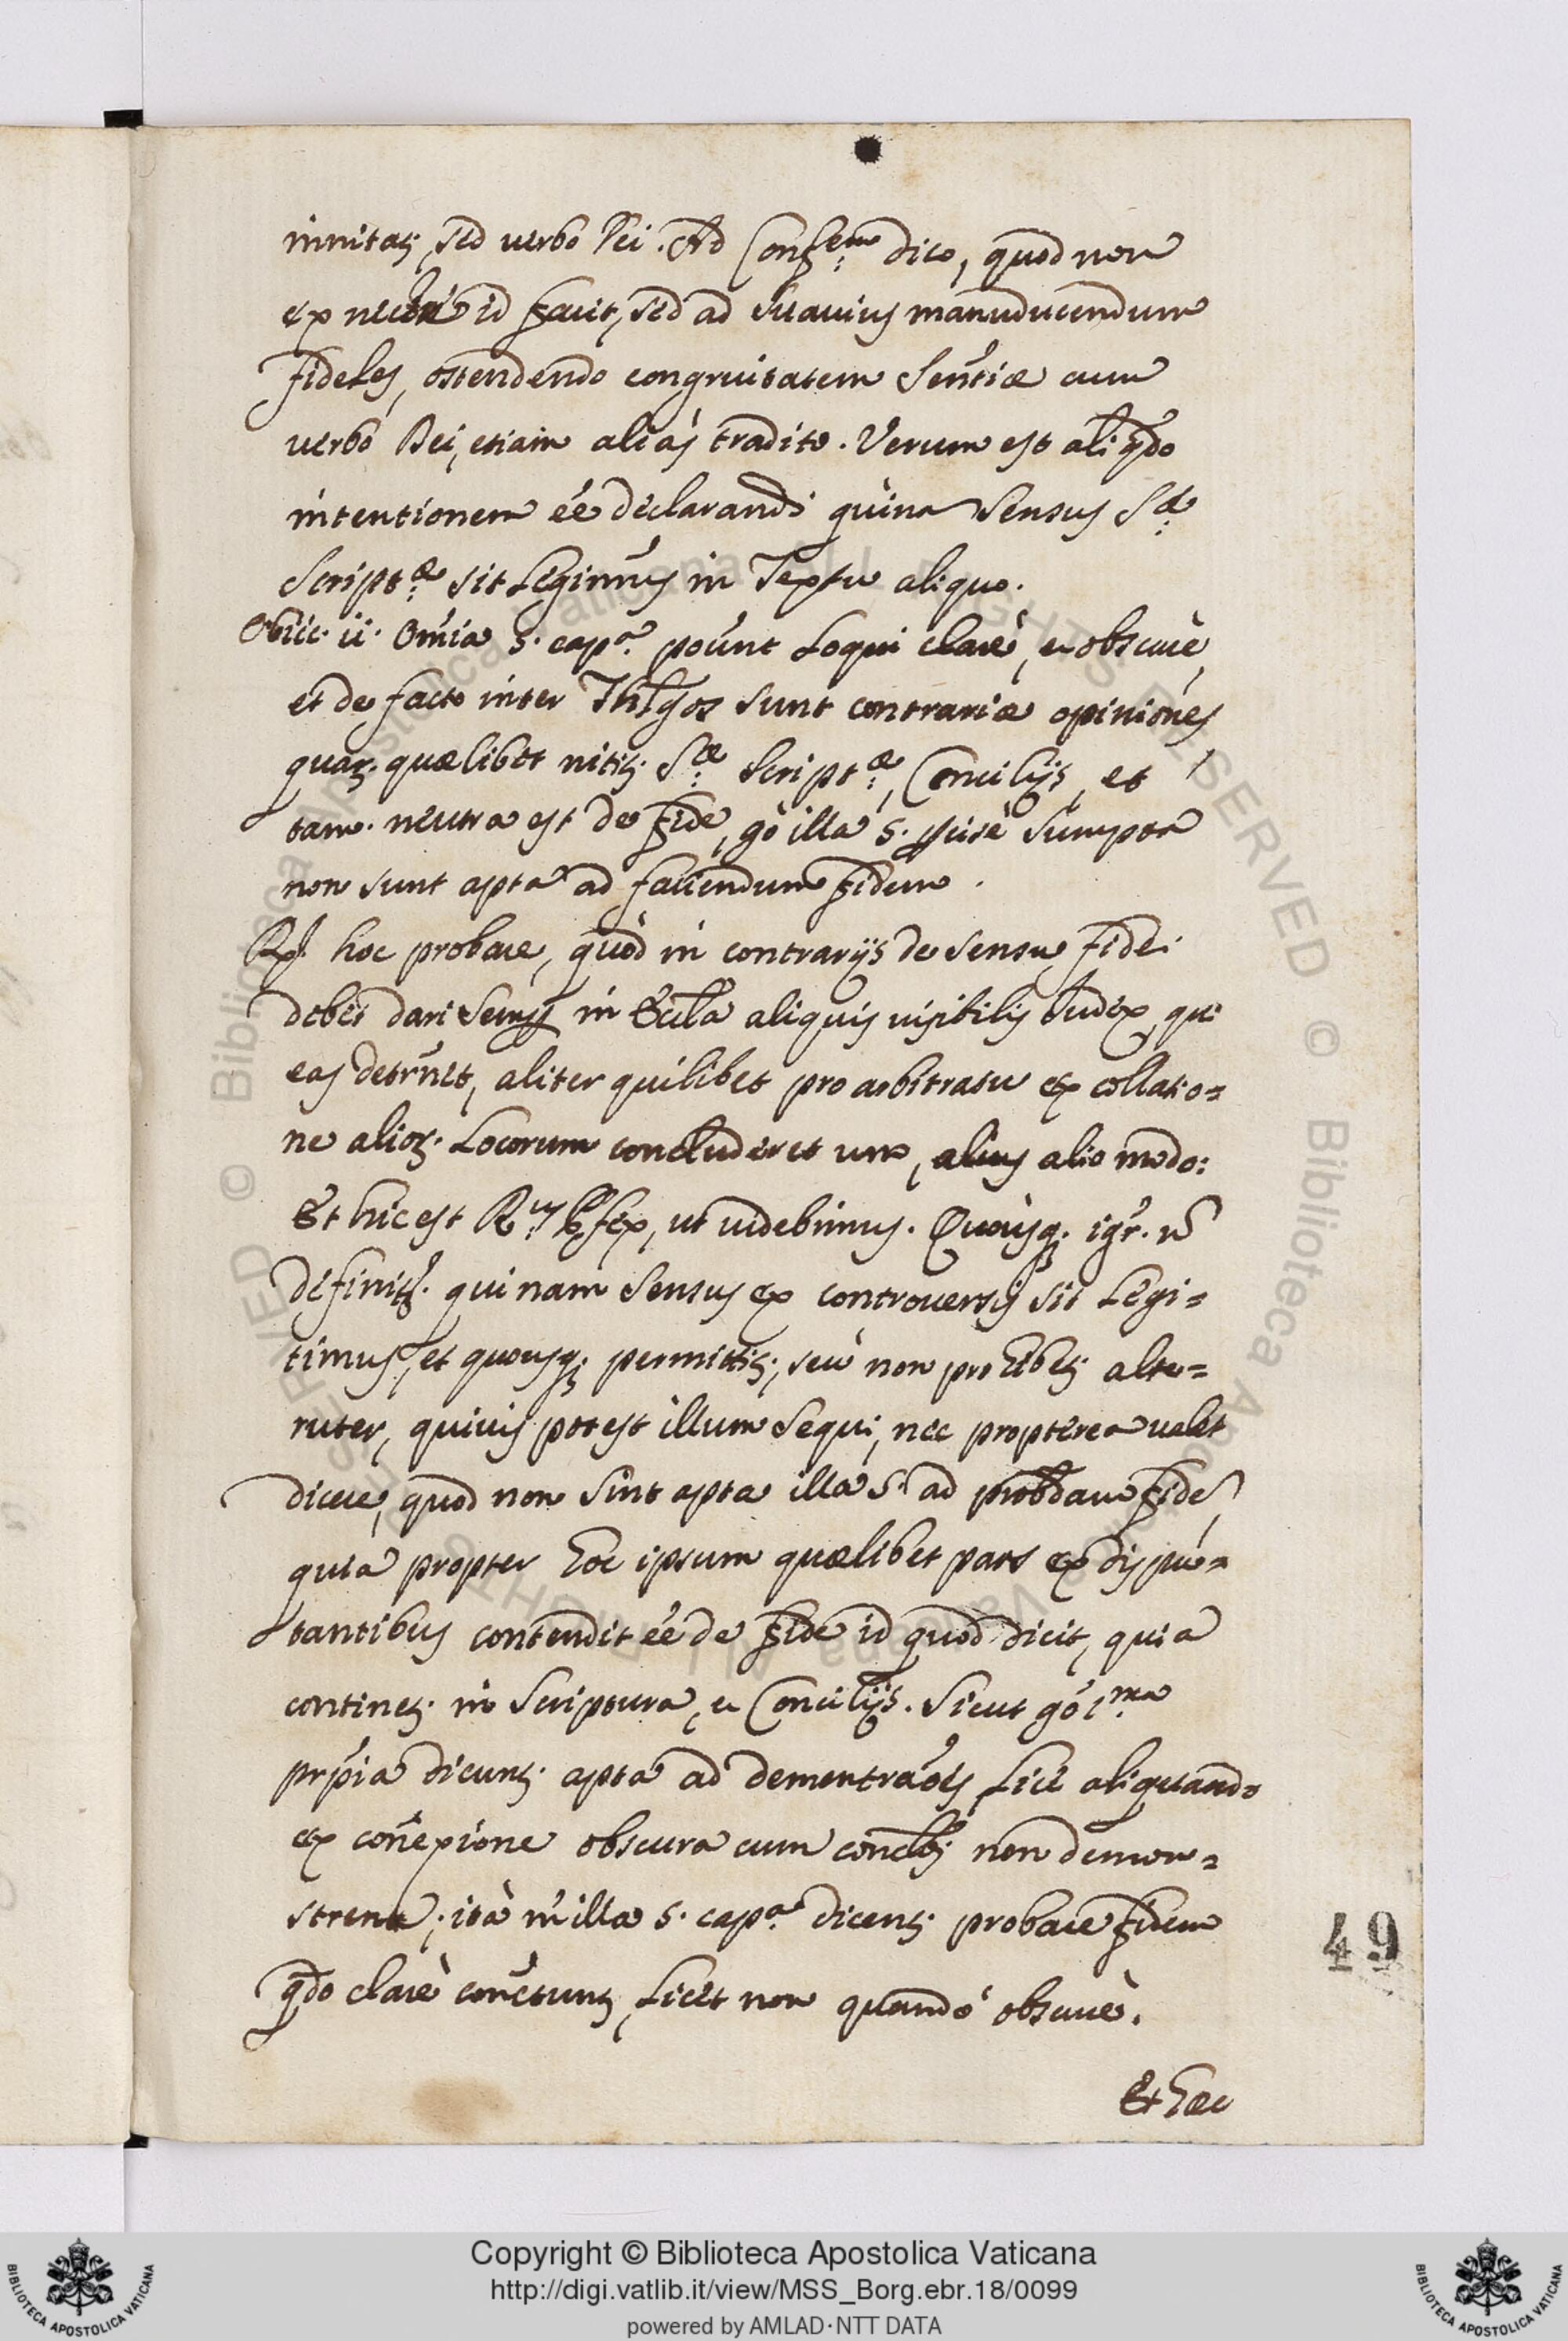 innitas; sed verbo Dei. Ad Conf.em dico, quod non
ex id facit, sed ad suavius manuducendum
fideles, ostendendo congruitatem Sentiæ cum
verbo Dei, etiam alias tradito. Verum est aliqdo
intentionem éé declarandi quina sensus S.æ
Script.æ sit Legimus in Textu aliquo.
Obiic. ii. Omia 5. cap.a pount Loqui clarè, et obscurè,
et de facto inter Thlgos sunt contrariæ opiniones
quar. quælibet nitit; S.æ Script.æ, Concilijs, et
tam. neutra est de fide, gò illa 5. sumpta
non sunt apta ad faciendum fidem.
Rx. hoc probare, quòd in contrarijs de sensu fidei
debet dari semp in Eccla aliquis visibilis Iudex, qui
eas detrnet, aliter quilibet pro arbitratu ex collatio=
ne alior. Locorum concluderet uno, alius alio modo:
Et hic est R.us Pfex, ut videbimus. Quousq. igr. n
definit. quinam sensus ex controversis sit Legi=
timus, et quousq; permittit; seu non prohibet; alte=
ruter, quivis potest illum sequi, nec propterea valet
dicere, quod non sint apta illa 5. ad probdam fide,
quia propter hoc ipsum quælibet pars ex dispu=
tantibus contendit éé de fide id quod dicit, quia
continet; in Scriptura, et Concilijs. Sicut gò i.ma
prpia dicunt; apta ad dementraões, licet aliquando
ex conexione obscura cum non demon=
strent; ità illa 5. cap.a dicent; probare fidem
qdo clarè conectunt, Licet non quando obscurè.
Et hæc
49
© Biblioteca Apostolica Vaticana ALL RIGHTS RESERVED © Biblioteca Apostolica Vaticana ALL RIGHTS RESERVED
Copyright © Biblioteca Apostolica Vaticana
http://digi.vatlib.it/view/MSS_Borg.ebr.18/0099
powered by AMLAD·NTT DATA
BIBLIOTECA APOSTOLICA VATICANA
BIBLIOTECA APOSTOLICA VATICANA